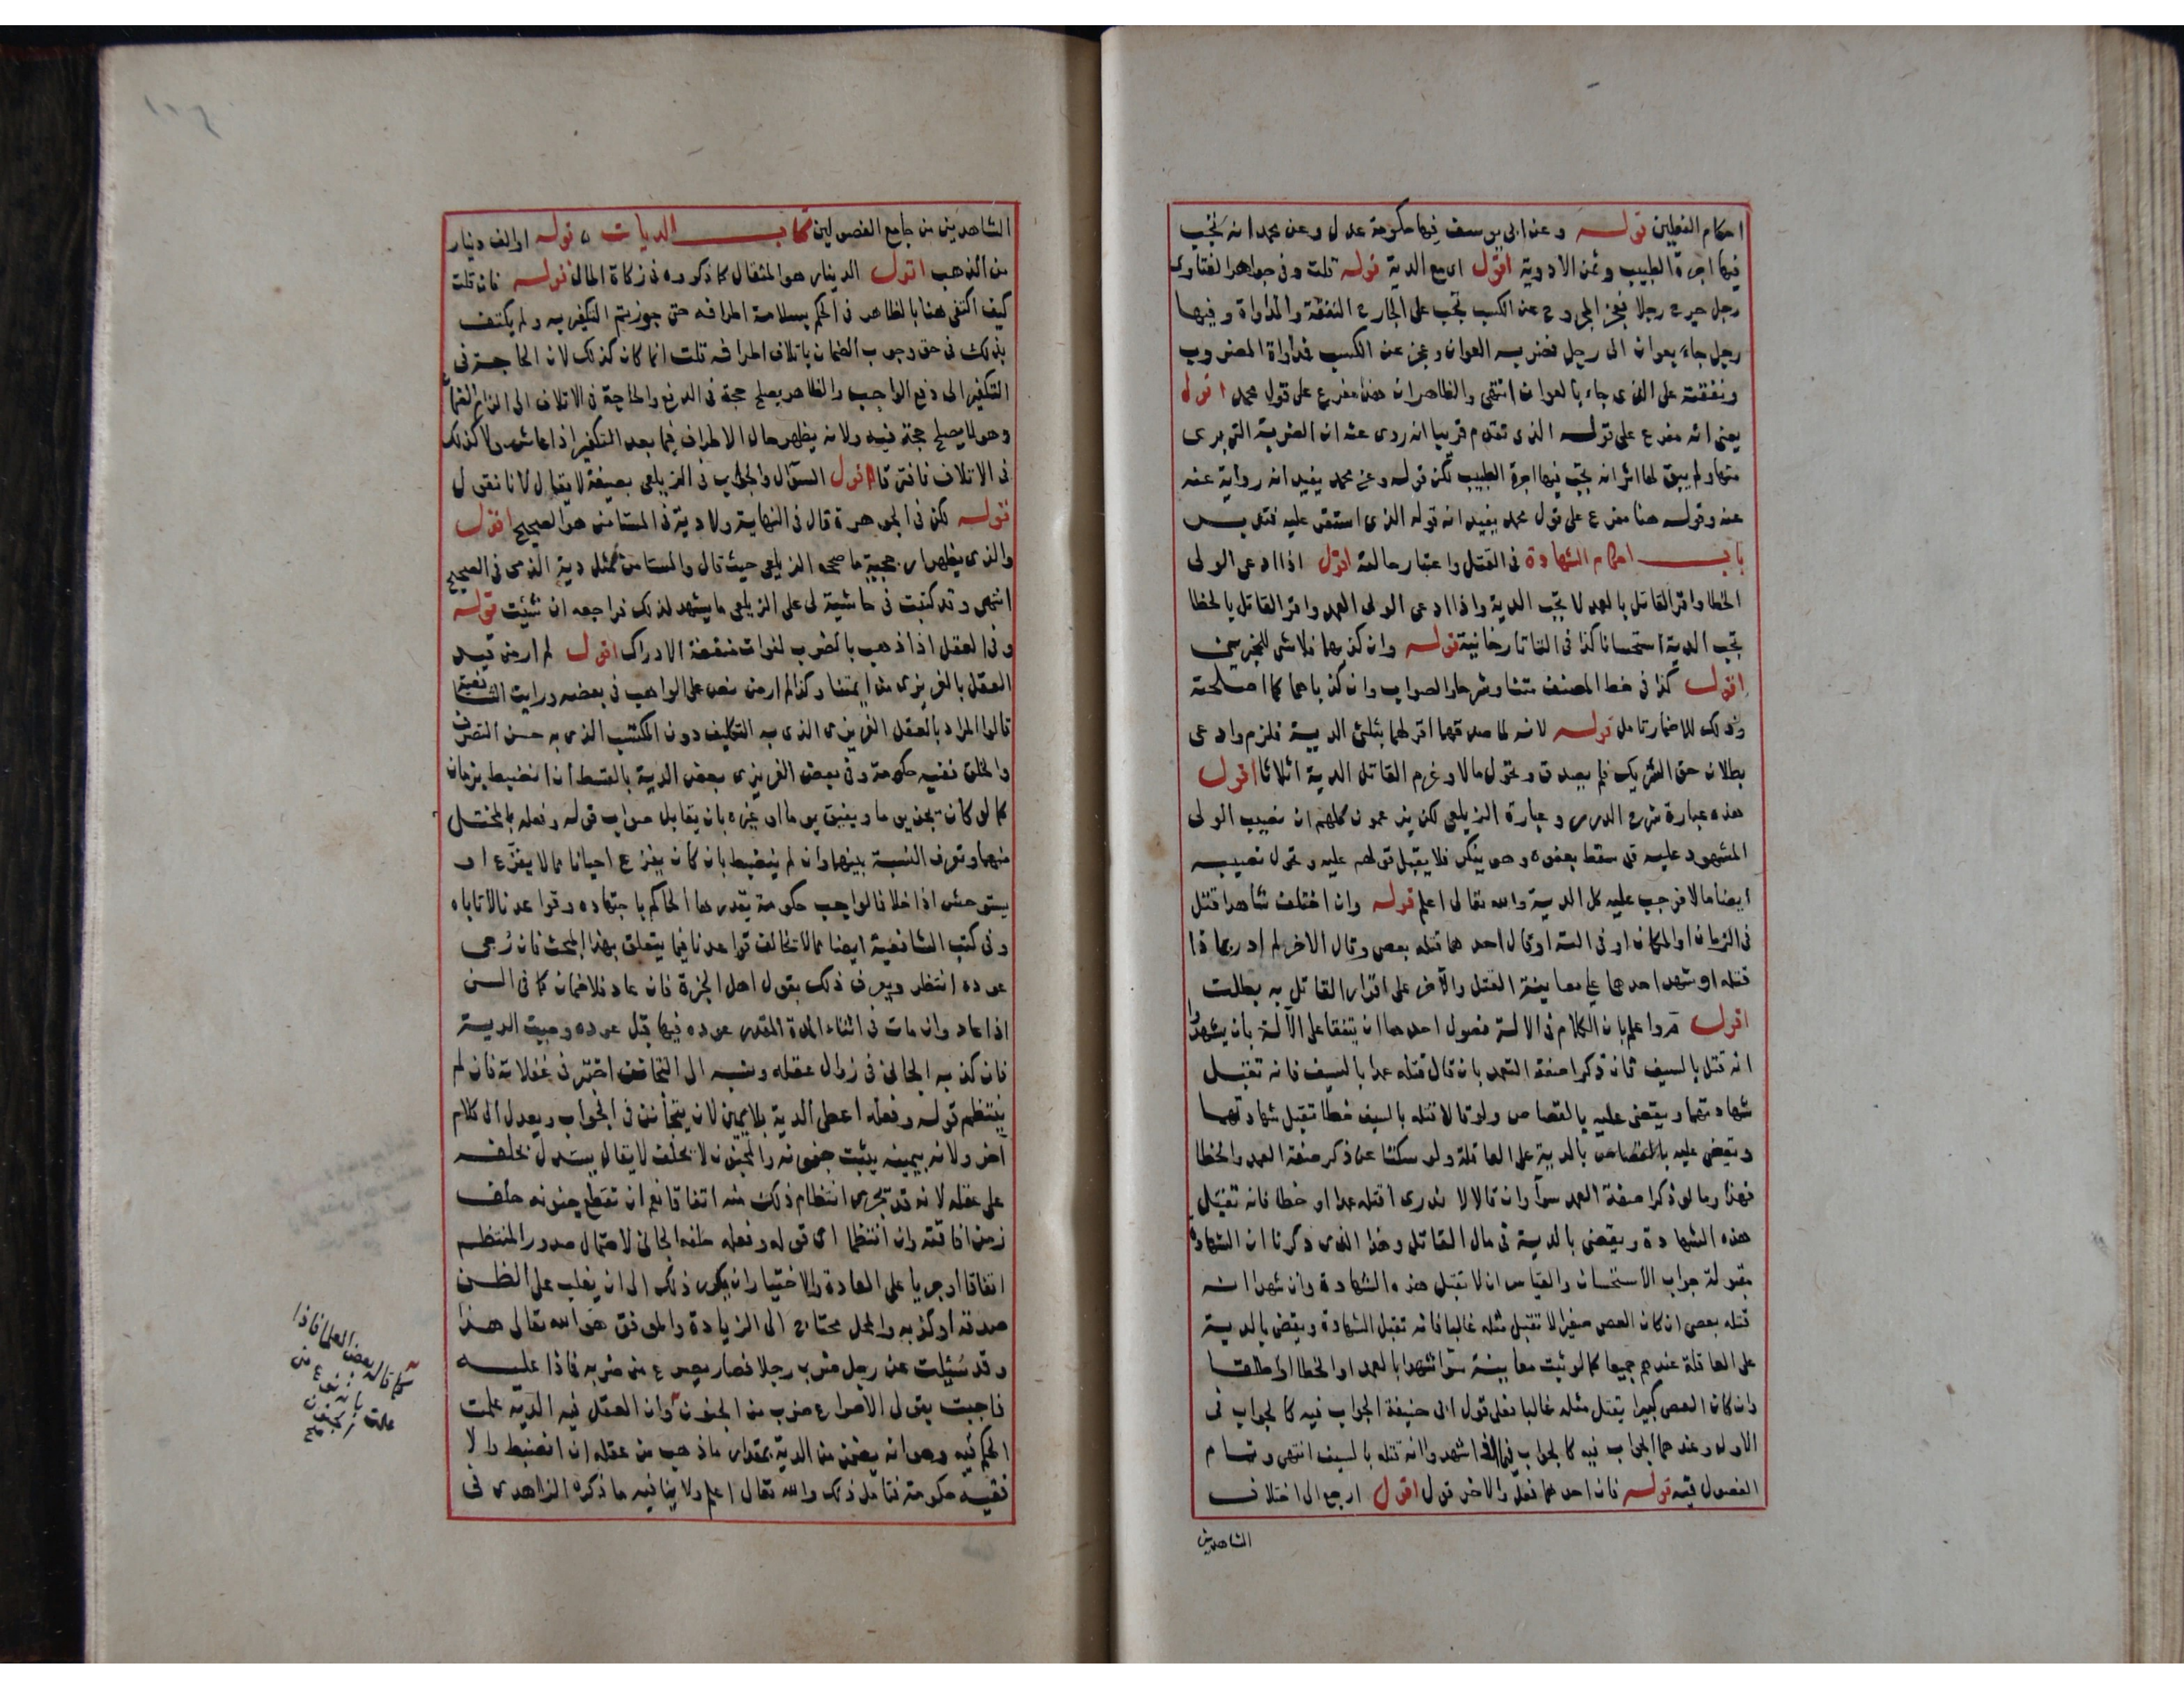 احكام الفعلين قوله وعن ابى يوسف فيها حكومة عدل وعن محمد انه تجب
فيها اجرة الطبيب وثمن الادوية اقول اى مع الدية قوله قلت وفى جواهر الفتاوى
رجل جرح رجلا فعجز المجروح عن الكسب تجب على الجارح النفقة والمداواة وفيها
رجل جاء بعوان الى رجل فضربه العوان وعجز عن الكسب فمداواة المضروب
ونفقته على الذى جاء بالعوان انتهى والظاهر ان هذا مفرع على قول محمد اقول
يعنى انه مفرع على قوله الذى تقدم قريبا انه روى عنه ان الضربة التى برى
منها ولم يبق لها اثر انه تجب فيها اجرة الطبيب لكن قوله وعن محمد يفيد انه رواية عنه
عنه وقوله هنا مفرع على قول محمد يفيد انه قوله الذى استقر عليه فتدبر
باب احكام الشهادة فى القتل واعتبار حالته اقول اذا ادعى الولى
الخطا واقر القاتل بالعمد لا تجب الدية واذا ادعى الولى العمد واقر القاتل بالخطا
تجب الدية استحسانا كذا فى التاتارخانية قوله وان كذبهما فلا شى للمخبرين
اقول كذا فى خط المصنف متنا وشرحا والصواب وان كذباهما كما اصلحته
وذلك للاضمار تامل قوله لانه لما صدقهما اقر لهما بثلثى الدية فلزم وادعى
بطلان حق الشريك فلم يصدق وتحول مالا وغرم القاتل الدية اثلاثا اقول
هذه عبارة شرح الدرر وعبارة الزيلعى لكن يزعمون كلهم ان نصيب الولى
المشهود عليه قد سقط بعفوه وهو ينكر فلا يقبل قولهم عليه وتحول نصيبه
ايضا مالا فوجب عليه كل الدية والله تعالى اعلم قوله وان اختلف شاهدا قتل
فى الزمان او المكان او فى الته او قال احدهما قتله بعصى وقال الاخر لم ادر بماذا
قتله او شهد احدهما على معاينة القتل والآخر على اقرار القاتل به بطلت
اقول مر واعلم بان الكلام فى الالة فصول احدها ان يتفقا على الآلة بان يشهدا
انه قتل بالسيف فان ذكرا صفة التعمد بان قال قتله عمدا بالسيف فانه تقبل
شهادتهما ويقضى عليه بالقصاص ولو قالا قتله بالسيف خطا تقبل شهادتهما
ويقضى عليه بالقصاص بالدية على العاقلة ولو سكتا عن ذكر صفة العمد والخطا
فهذا وما لو ذكرا صفة العمد سوآ وان قالا لا ندرى اقتله عمدا او خطا فانه تقبل
هذه الشهادة ويقضى بالدية فى مال القاتل وهذا الذى ذكرنا ان الشهادة
مقبولة جواب الاستحسان والقياس ان لا تقبل هذه الشهادة وان شهدا انه
قتله بعصى ان كان العصى صغيرا لا تقتل مثله غالبا فانه تقبل الشهادة ويقضى بالدية
على العاقلة عندهم جميعا كما لو ثبت معاينة سوآ شهدا بالعمد او الخطا او اطلقا
وان كان العصى كبيرا يقتل مثله غالبا فعلى قول ابى حنيفة الجواب فيه كالجواب فى
الاول وعندهما الجواب فيه كالجواب فيما اذا شهدوا انه قتله بالسيف انتهى وتمام
الفصول فيه قوله فان احدهما فعل والاخر قول اقول ارجع الى اختلاف
الشاهدين
الشاهدين من جامع الفصولين كتاب الديات قوله او الف دينار
من الذهب اقول الدينار هو المثقال كما ذكروه فى زكاة المال قوله فان قلت
كيف اكتفى هنا بالظاهر فى الحكم بسلامة اطرافه حتى جوزتم التكفير به ولم يكتف
بذلك فى حق وجوب الضمان باتلاف اطرافه قلت انما كان كذلك لان الحاجة فى
التكفير الى دفع الواجب والظاهر يصلح حجة فى الدفع والحاجة فى الاتلاف الى الزام الضمان
وهو لا يصلح حجة فيه ولانه يظهر حال الاطراف فيما بعد التكفير اذا عاش ولا كذلك
فى الاتلاف فافترقا اقول السوآل والجواب فى الزيلعى بصيغة لا يقال لانا نقول
قوله لكن فى الجوهرة قال فى النهاية ولا دية فى المستامن هو الصحيح اقول
والذى يظهر ارجحية ما صححه الزيلعى حيث قال والمستامن كمثل دية الذمى فى الصحيح
انتهى وقد كتبت فى حاشية لى على الزيلعى ما يشهد لذلك فراجعه ان شئت قوله
وفى العقل اذا ذهب بالضرب لفوات منفعة الادراك اقول لم ار من قيد
العقل بالغريزى من ائمتنا وكذا لم ار من نص على الواجب فى بعضه ورايت الشافعية
قالوا المراد بالعقل الغريزى الذى به التكليف دون المكتسب الذى به حسن التصرف
والخلق ففيه حكومة وفى بعض الغريزى بعض الدية بالقسط ان انضبط بزمان
كما لو كان يجن يوما ويفيق يوما او غيره بان يقابل صواب قوله وفعله بالمختل
منهما وتعرف النسبة بينهما وان لم ينضبط بان كان يفزع احيانا مما لا يفزع او
يستوحش اذا خلا فالواجب حكومة يقدرها الحاكم باجتهاده وقواعدنا لا تاباه
وفى كتب الشافعية ايضا مما لا تخالف قواعدنا فيما يتعلق بهذا المبحث فان رجى
عوده انتظر ويعرف ذلك بقول اهل الخبرة فان عاد فلا ضمان كما فى السن
اذا عاد وان مات فى اثناء المدة المقدر عوده فيها قبل عوده وجبت الدية
فان كذبه الجانى فى زوال عقله ونسبه الى التجانن اختبر فى غفلاته فان لم
ينتظم قوله وفعله اعطى الدية بلا يمين لانه يتجانن فى الجواب ويعدل الى كلام
آخر ولانه بيمينه يثبت جنونه والمجنون لا يحلف لا يقال يستدل بحلفه
على عقله لانه قد يجرى انتظام ذلك منه اتفاقا نعم ان تقطع جنونه حلف
زمن افاقته وان انتظما اى قوله وفعله حلف الجانى لاحتمال صدور المنتظم
اتفاقا او جريا على العادة والاختيار ان يكرر ذلك الى ان يغلب على الظن
صدقه او كذبه والمحل محتاج الى الزيادة والموفق هو الله تعالى هذا
وقد سُئِلت عن رجل ضرب رجلا فصار يصرع من ضربه فماذا عليه
فاجبت بقولى الاصراع ضرب من الجنون وان العقل فيه الدية علمت
الحكم فيه وهو انه يضمن من الدية بمقدار ما ذهب من عقله ان انضبط والا
ففيه حكومة فتامل ذلك والله تعالى اعلم ولا ينافيه ما ذكره الزاهدى فى
كما قاله بعض العلما فاذا
علمت بانه نوع من
الجنون
صح